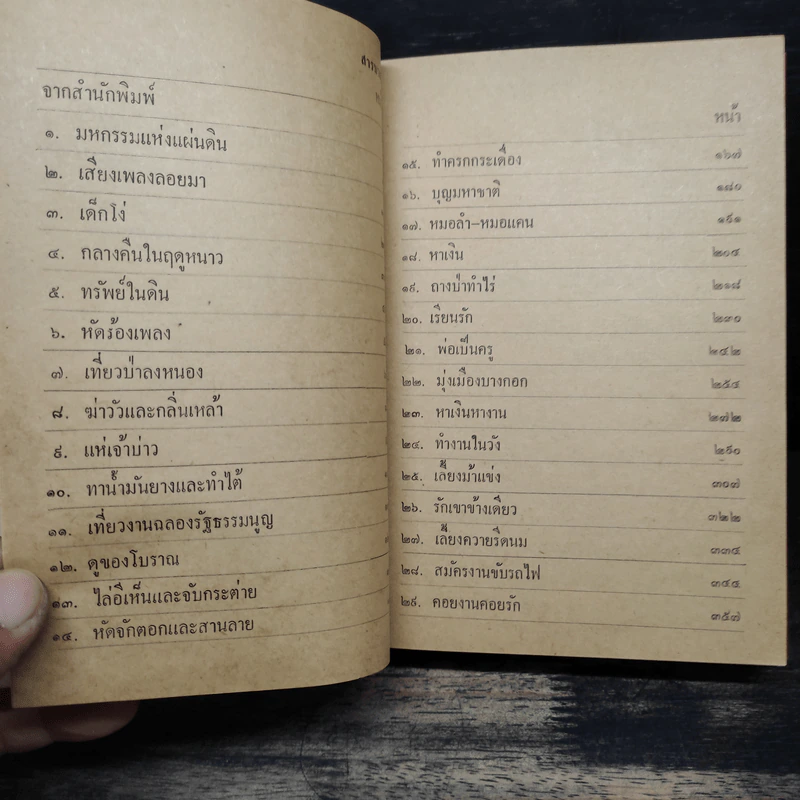 จากสำนักพิมพ์
๑. มหกรรมแห่งแผ่นดิน
๒. เสียงเพลงลอยมา
๓. เด็กโง่
๔. กลางคืนในฤดูหนาว
๕. ทรัพย์ในดิน
๖. หัดร้องเพลง
๗. เที่ยวป่าลงหนอง
๘. ฆ่าวัวและกลิ่นเหล้า
๙. แห่เจ้าบ่าว
๑๐. ทาน้ำมันยางและทำไต้
๑๑. เที่ยวงานฉลองรัฐธรรมนูญ
๑๒. ดูของโบราณ
๑๓. ไล่อีเห็นและจับกระต่าย
๑๔. หัดจักตอกและสานลาย
หน้า
๑๕. ทำครกกระเดื่อง ๑๖๗
๑๖. บุญมหาชาติ ๑๘๐
๑๗. หมอลำ-หมอแคน ๑๙๑
๑๘. หาเงิน ๒๐๔
๑๙. ถางป่าทำไร่ ๒๑๘
๒๐. เรียนรัก ๒๓๐
๒๑. พ่อเป็นครู ๒๔๒
๒๒. มุ่งเมืองบางกอก ๒๕๔
๒๓. หาเงินหางาน ๒๗๒
๒๔. ทำงานในวัง ๒๙๐
๒๕. เลี้ยงม้าแข่ง ๓๐๗
๒๖. รักเขาข้างเดียว ๓๒๒
๒๗. เลี้ยงควายรีดนม ๓๓๔
๒๘. สมัครงานขับรถไฟ ๓๔๕
๒๙. คอยงานคอยรัก ๓๕๗